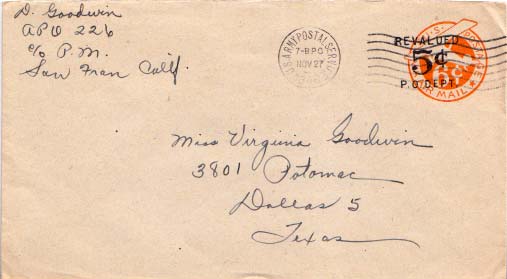 D. Goodwin
APO 226
c/o P.M.
San Fran Calif.
U.S. ARMY POSTAL SERVICE
7-BPC
NOV 27
REVALUED
5¢
P.O. DEPT.
U.S. POSTAGE
6¢
AIR MAIL
Miss Virginia Goodwin
3801 Potomac
Dallas 5
Texas